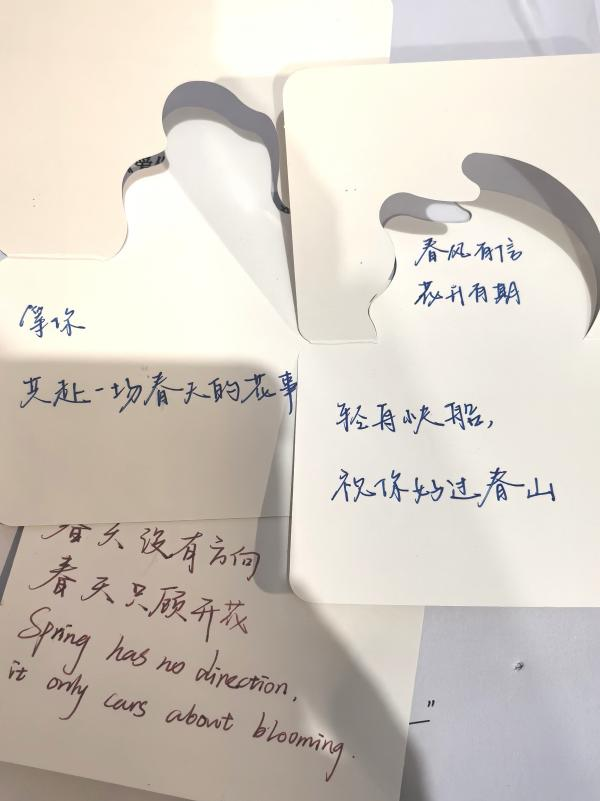 等你
共赴一场春天的花事
春风有信
花开有期
轻舟快船,
祝你好过春山
春天没有方向
春天只顾开花
Spring has no direction,
it only cars about blooming.